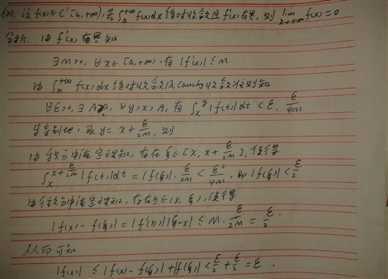 例. 设 f(x)∈C'[a,+∞), 若∫_a^{+∞} f(x)dx 绝对收敛且f'(x)有界, 则 lim_{x→+∞} f(x)=0
分析: 由 f'(x) 有界知
∃M>0, ∀x∈[a,+∞), 有 |f'(x)|≤M
由∫_a^{+∞} f(x)dx 绝对收敛及Cauchy收敛准则知
∀ε>0, ∃A>0, ∀y>x>A, 有∫_x^y |f(t)|dt < ε²/4M
特别地, 取 y=x+ε/2M, 则
由积分中值定理知, 存在 ξ∈[x, x+ε/2M], 使得
∫_x^{x+ε/2M} |f(t)|dt = |f(ξ)|·ε/2M < ε²/4M, 即 |f(ξ)|<ε/2
由微分中值定理知, 存在η∈(x,ξ), 使得
|f(x)-f(ξ)| = |f'(η)||ξ-x| ≤ M·ε/2M = ε/2.
从而可知
|f(x)| ≤ |f(x)-f(ξ)|+|f(ξ)| < ε/2+ε/2=ε.